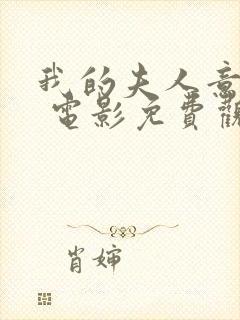 我的夫人意
电影免費觀
肖婶